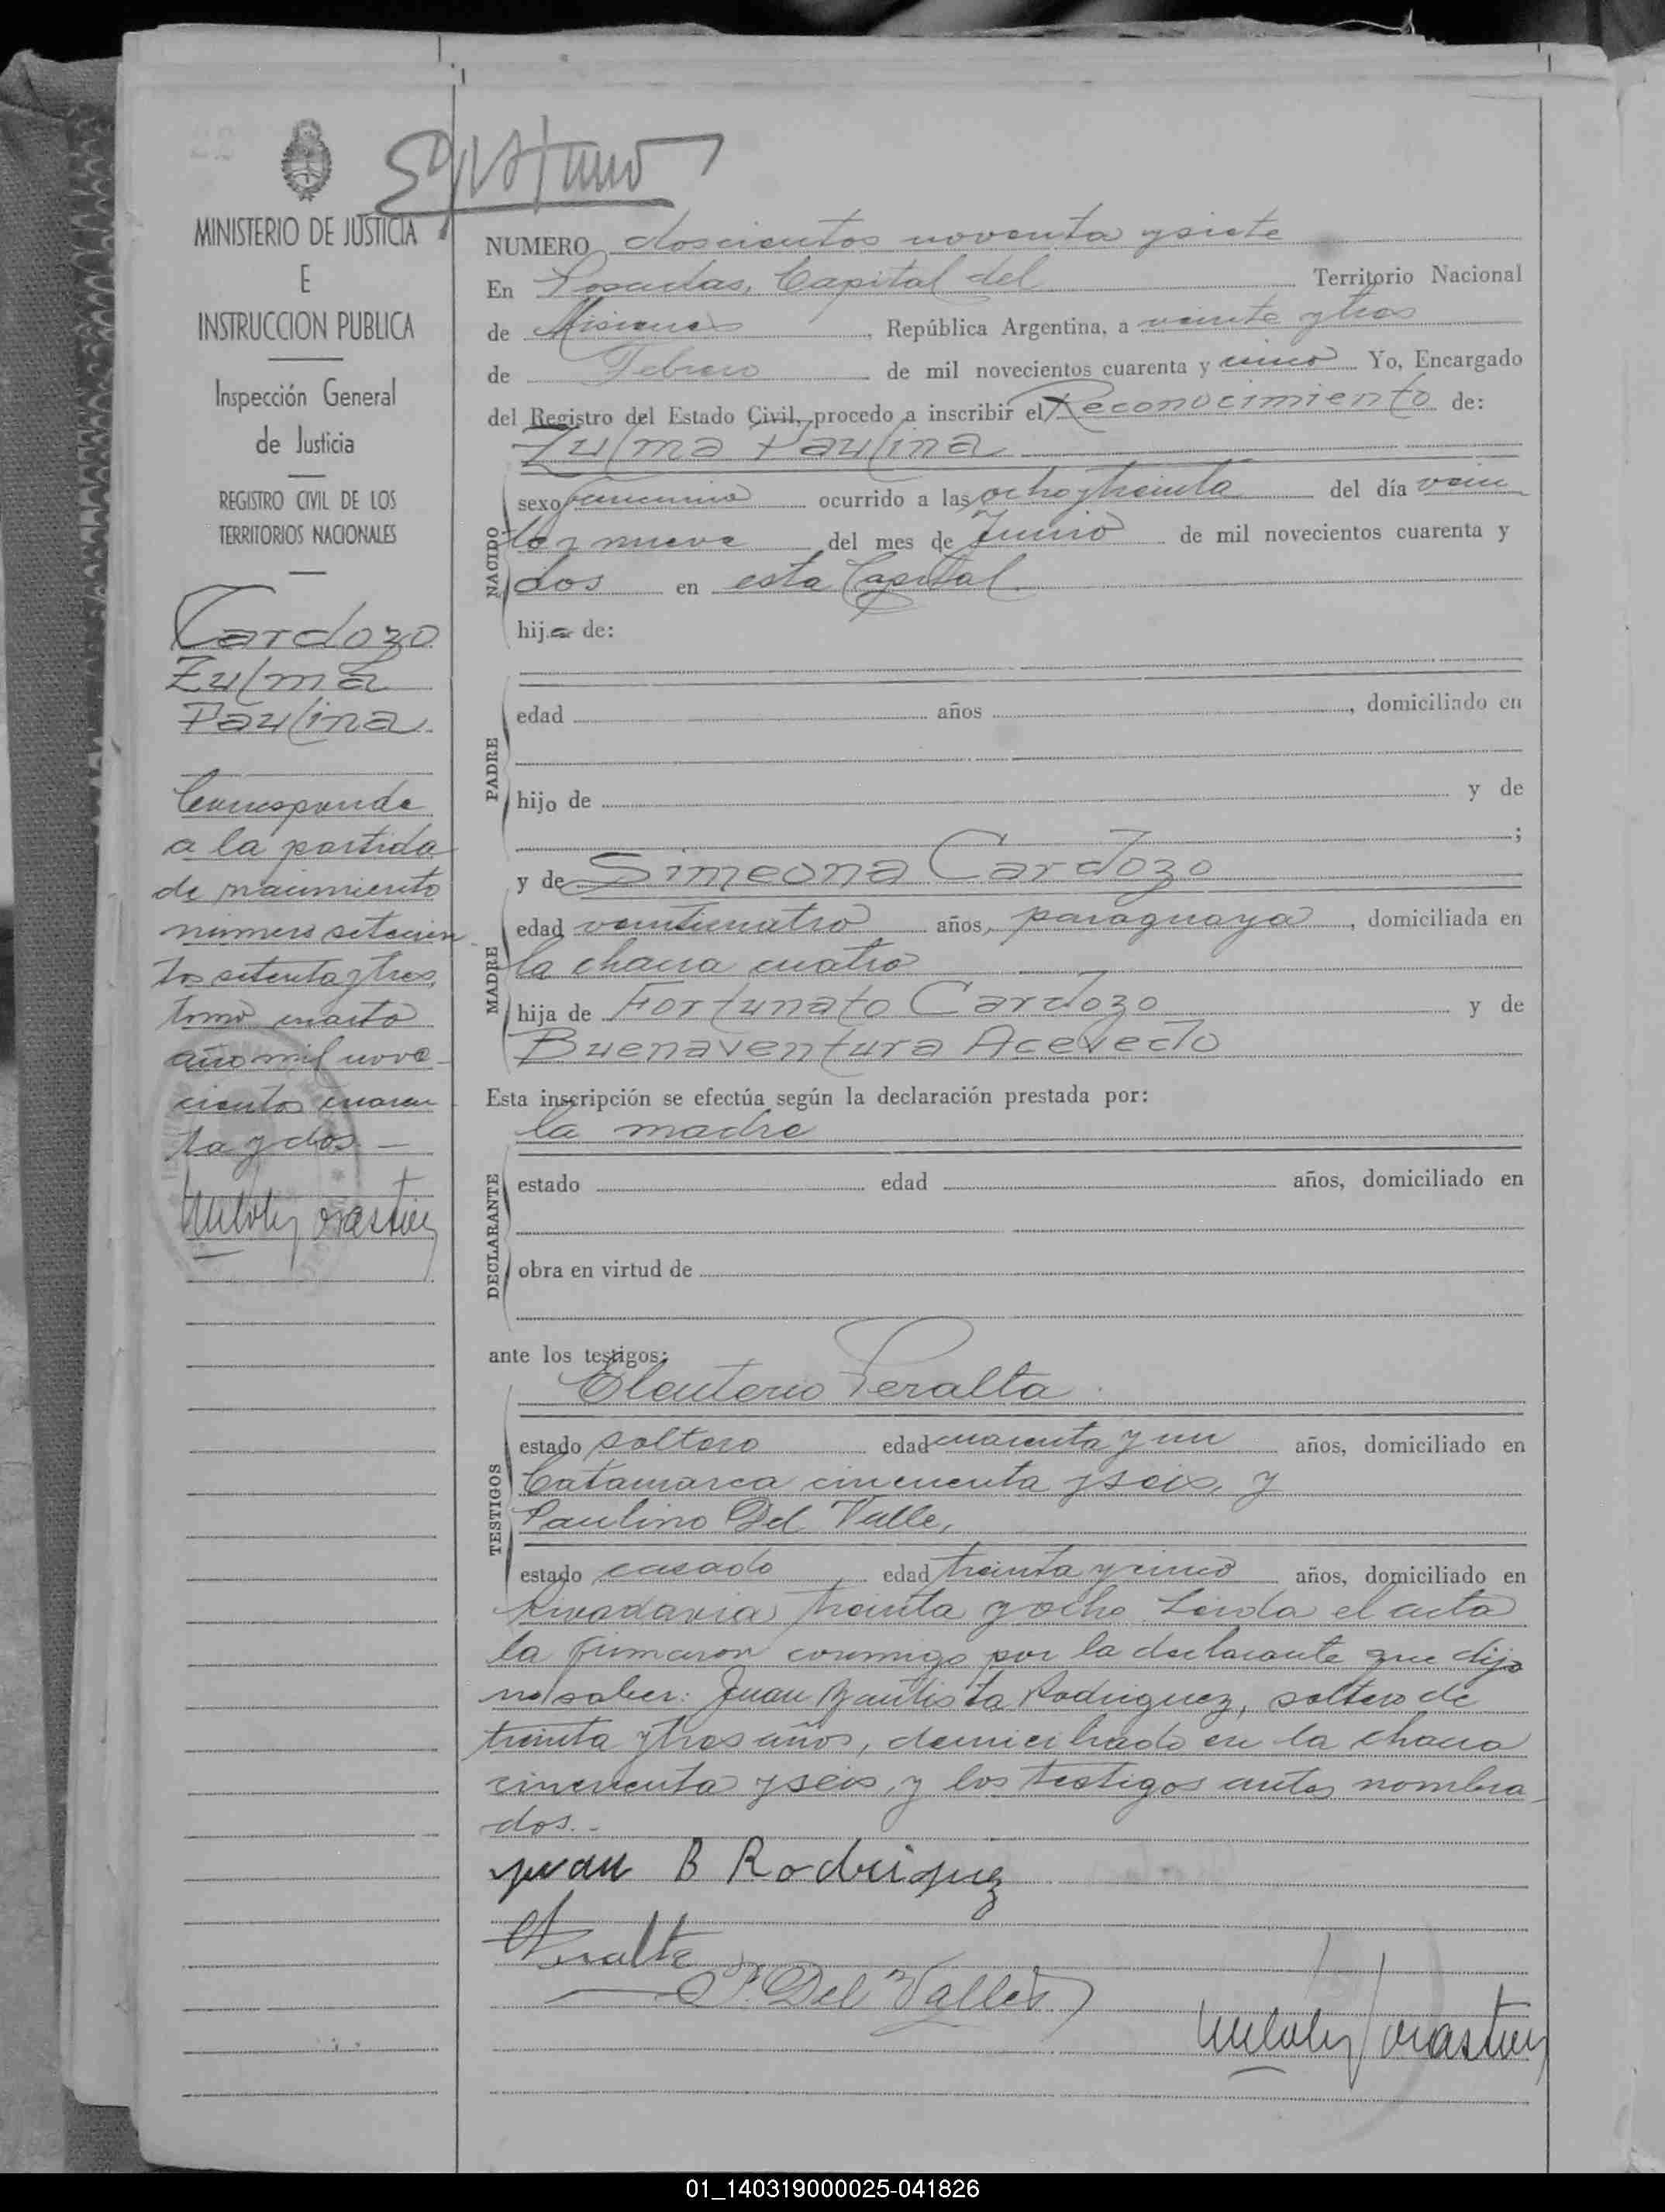 MINISTERIO DE JUSTICIA
E
INSTRUCCION PUBLICA
Inspección General
de Justicia
REGISTRO CIVIL DE LOS
TERRITORIOS NACIONALES
Cardozo
Zulma
Paulina
Corresponde
a la partida
de nacimiento
número setecien
tos setenta y tres,
tomo cuarto
año mil nove
cientos cuaren
ta y dos.—
NUMERO doscientos noventa y siete
En Posadas, Capital del Territorio Nacional
de Misiones, República Argentina, a veinte y tres
de Febrero de mil novecientos cuarenta y cinco Yo, Encargado
del Registro del Estado Civil, procedo a inscribir el Reconocimiento de:
Zulma Paulina
NACIDO
sexo femenino ocurrido a las ocho y treinta del día vein
te y nueve del mes de Junio de mil novecientos cuarenta y
dos en esta Capital
hija de:
PADRE
edad años, domiciliado en
hijo de y de
;
y de Simeona Cardozo
MADRE
edad veinticuatro años, paraguaya, domiciliada en
la chacra cuatro
hija de Fortunato Cardozo y de
Buenaventura Acevedo
Esta inscripción se efectúa según la declaración prestada por:
la madre
DECLARANTE
estado edad años, domiciliado en
obra en virtud de
ante los testigos:
Eleuterio Peralta
TESTIGOS
estado soltero edad cuarenta y un años, domiciliado en
Catamarca cincuenta y seis, y
Paulino Del Valle,
estado casado edad treinta y cinco años, domiciliado en
Rivadavia treinta y ocho. Leida el acta
la firmaron conmigo por la declarante que dijo
no saber: Juan Bautista Rodriguez, soltero de
treinta y tres años, domiciliado en la chacra
cincuenta y seis, y los testigos antes nombra
dos.-
Juan B Rodriguez
Peralta
P. Del Valle
01_140319000025-041826